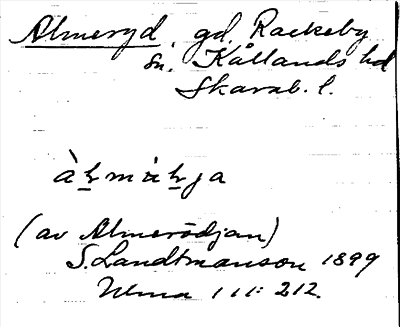 Almeryd, gd, Rackeby
sn. Kållands hd
Skarab. l.
(av Almerödjan)
S. Landtmanson 1899
Ulma 111: 212.